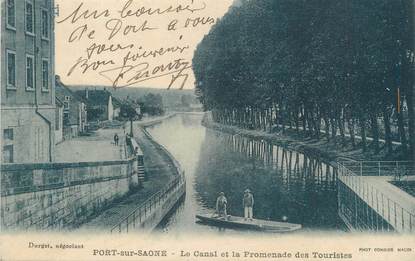 Un bonsoir
de Port à vous
tous.
Bon souvenir
Durget, négociant
PORT-sur-SAONE - Le Canal et la Promenade des Touristes
PHOT. COMBIER MACON